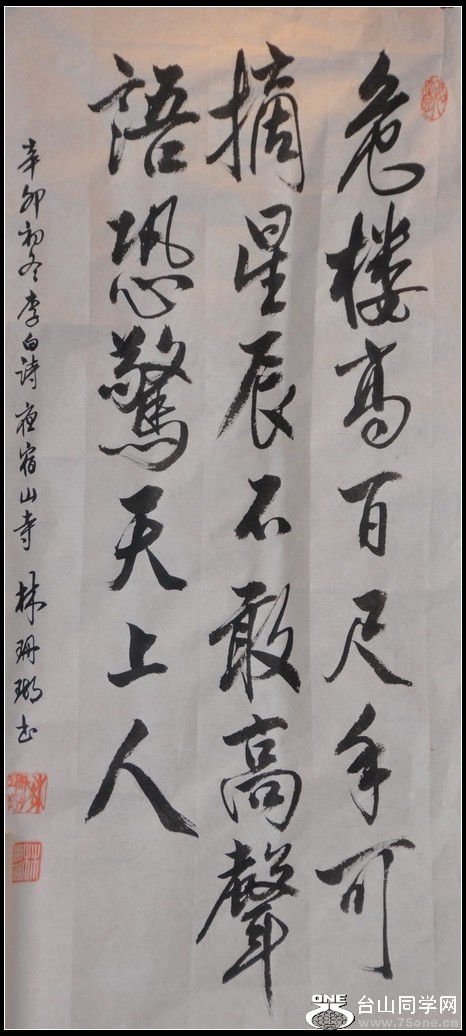 危楼高百尺手可
摘星辰不敢高聲
語恐驚天上人
辛卯初冬李白诗夜宿山寺 林珊瑚书
ONE
台山同学网
www.75one.cn